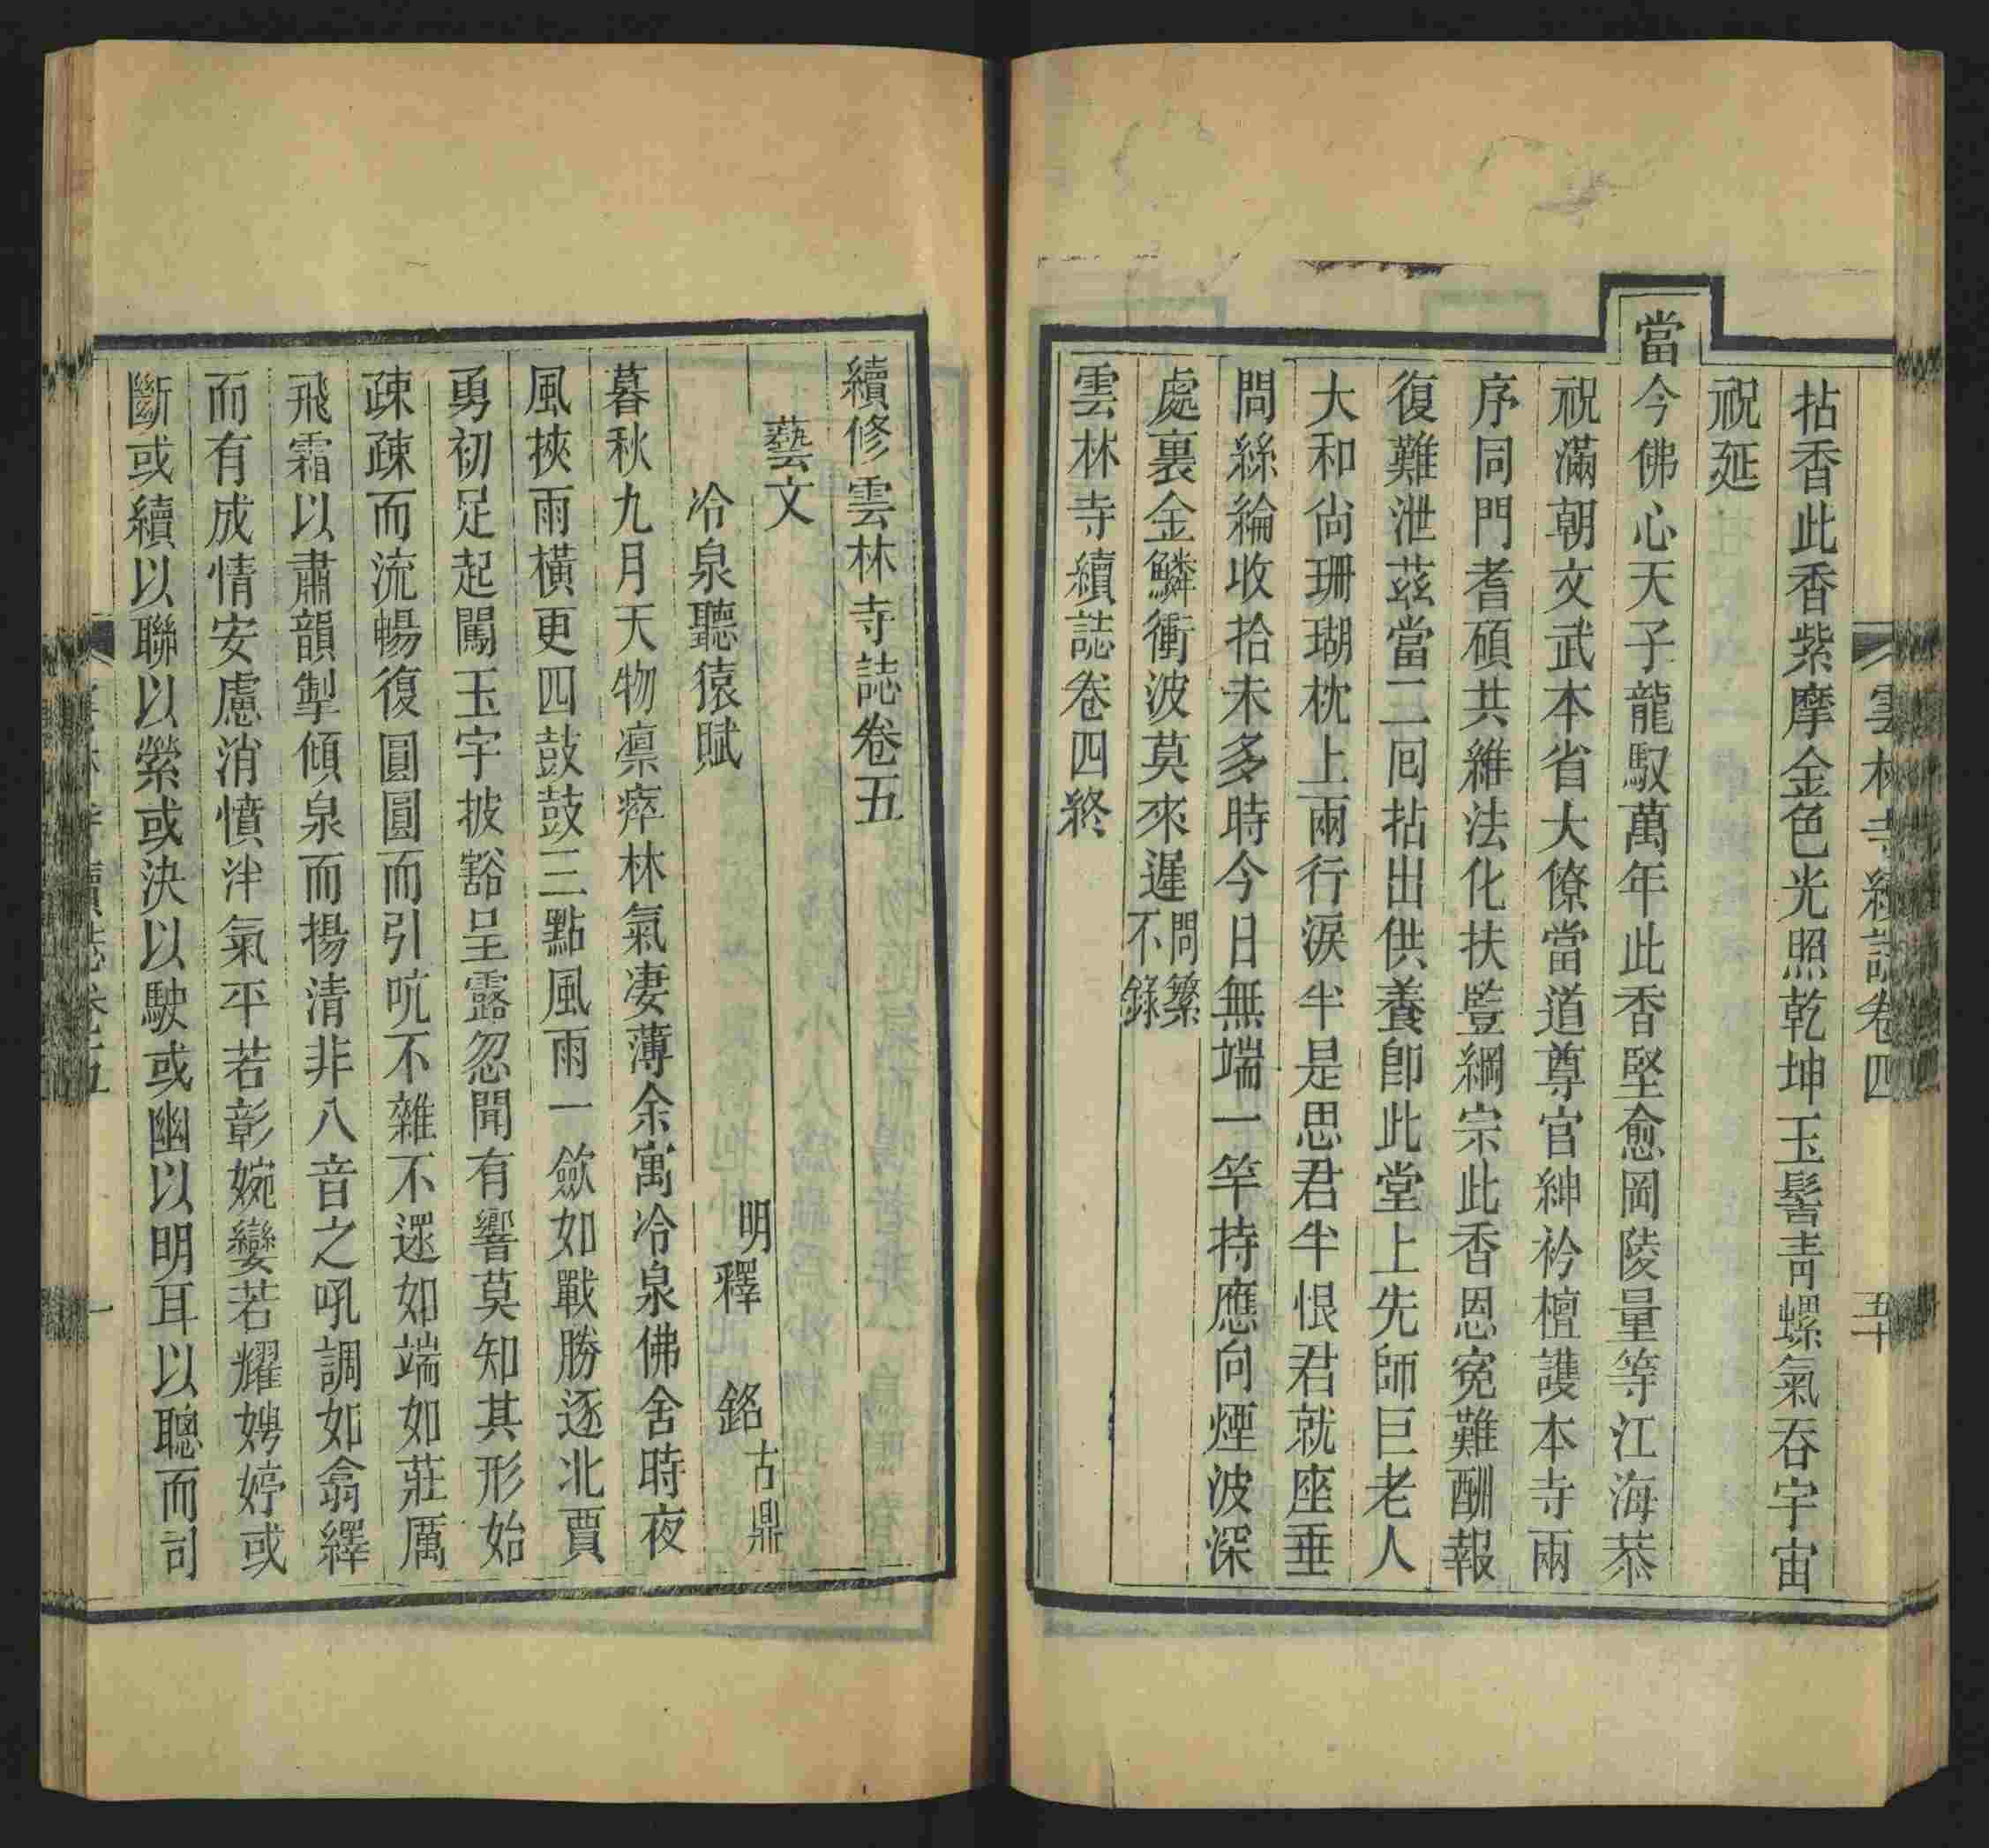 雲林寺續誌卷四
五十
拈香此香紫摩金色光照乾坤玉髻青螺氣吞宇宙
祝延
當今佛心天子龍馭萬年此香堅愈岡陵量等江海恭
祝滿朝文武本省大僚當道尊官紳衿檀護本寺兩
序同門耆碩共維法化扶豎綱宗此香恩寃難酬報
復難泄茲當二囘拈出供養卽此堂上先師巨老人
大和尙珊瑚枕上兩行淚半是思君半恨君就座垂
問絲綸收拾未多時今日無端一竿持應向煙波深
處裏金鱗衝波莫來遲問繁不錄
雲林寺續誌卷四終
續修雲林寺誌卷五
藝文
冷泉聽猿賦
明釋
銘古鼎
暮秋九月天物凛瘁林氣凄薄余寓冷泉佛舍時夜
風挾雨橫更四鼓鼓三點風雨一歛如戰勝逐北賈
勇初足起闖玉宇披豁呈露忽聞有響莫知其形始
疎疎而流暢復圓圓而引吭不雜不遝如端如莊厲
飛霜以肅韻掣傾泉而揚清非八音之吼調如翕繹
而有成情安慮消憤泮氣平若彰婉孌若耀娉婷或
斷或續以聯以縈或決以駛或幽以明耳以聰而司
雲林寺續誌卷五
一